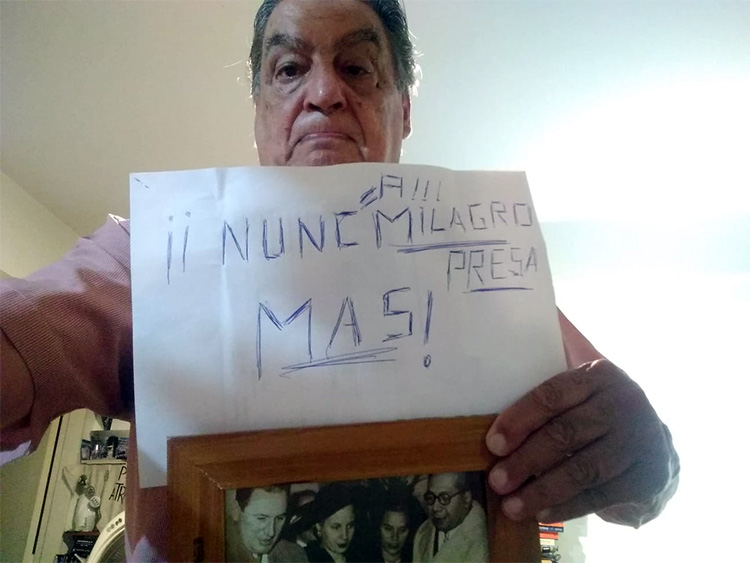 ¡¡ NUNCA!!!
MILAGRO
PRESA
MAS!